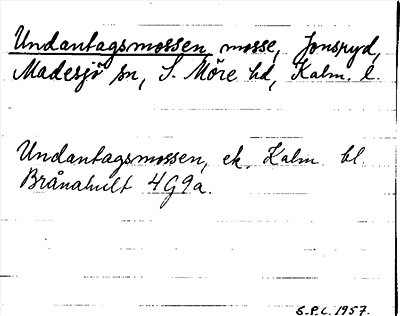 Undantagsmossen mosse, Jonsryd,
Madesjö sn, S. Möre hd, Kalm. l.
Undantagsmossen, ek. Kalm bl.
Brånahult 4G9a.
S.P.L. 1957.